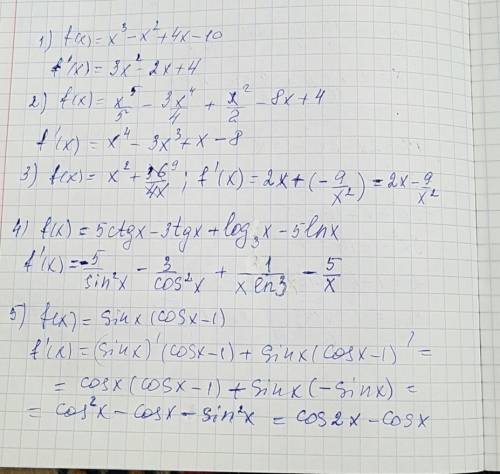 1) f(x) = x³ - x² + 4x - 10
f'(x) = 3x² - 2x + 4
2) f(x) = x⁵/5 - 3x⁴/4 + x²/2 - 8x + 4
f'(x) = x⁴ - 3x³ + x - 8
3) f(x) = x² + 36⁹/4x ; f'(x) = 2x + (-9/x²) = 2x - 9/x²
4) f(x) = 5ctgx - 3tgx + log₃x - 5lnx
f'(x) = -5/sin²x - 3/cos²x + 1/xln3 - 5/x
5) f(x) = sinx(cosx-1)
f'(x) = (sinx)'(cosx-1) + sinx(cosx-1)' =
= cosx(cosx-1) + sinx(-sinx) =
= cos²x - cosx - sin²x = cos2x - cosx